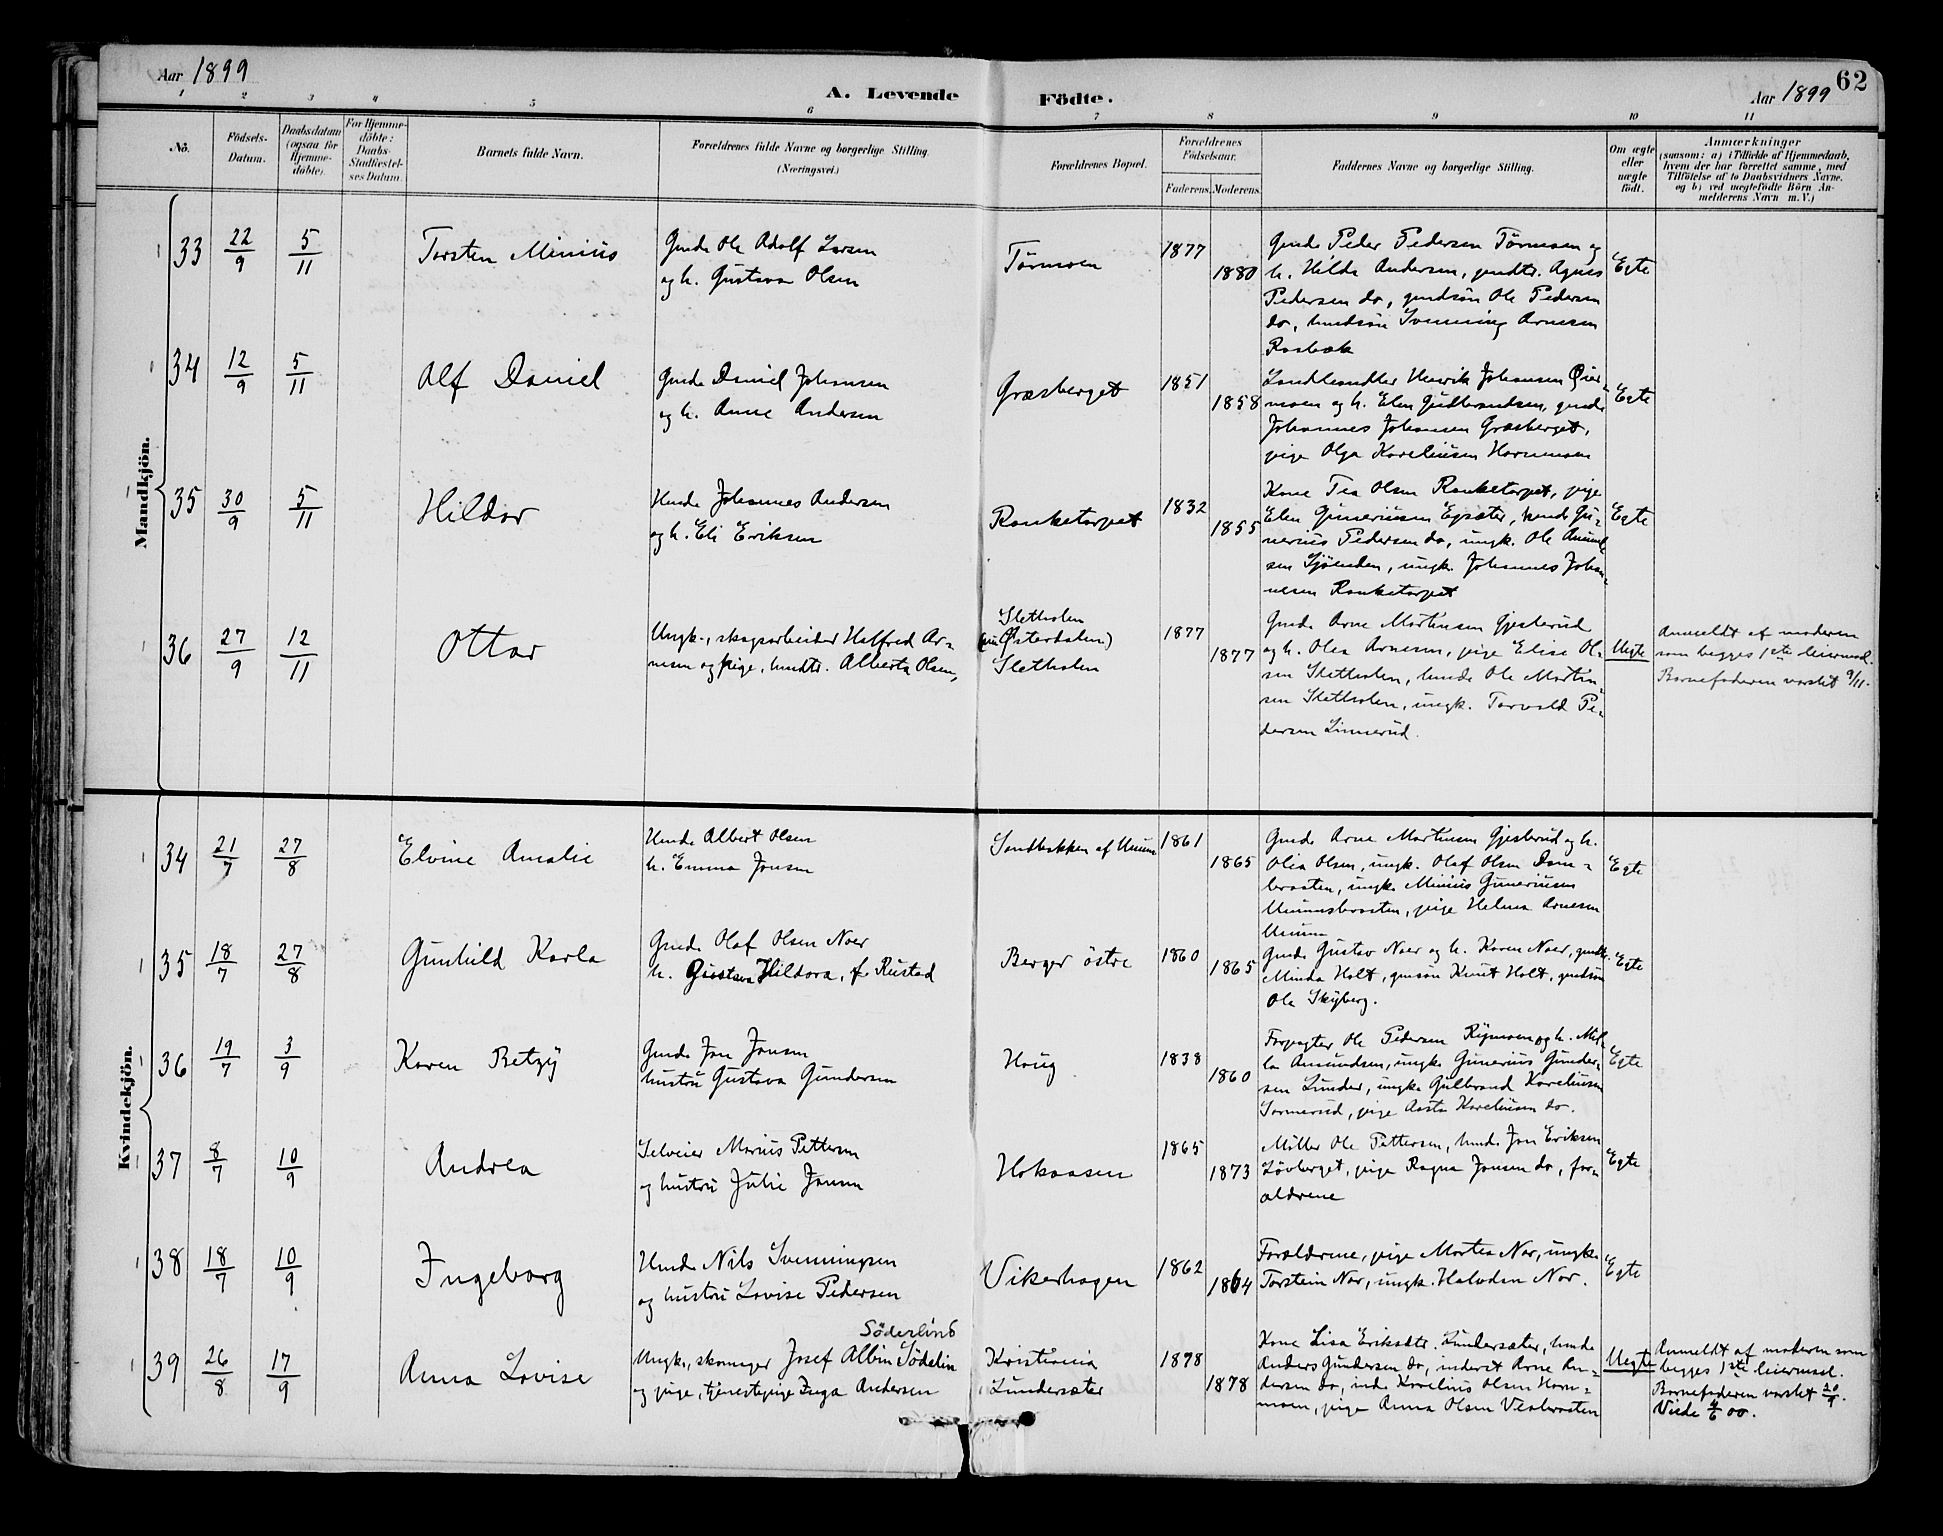 Aar 1899
A. Levende Födte.
Aar 1899
62
1 2 3 4 5 6 7 8 9 10 11
No.
Födsels-
Datum.
Daabsdatum
(ogsaa for
Hjemme-
döbte).
For Hjemme-
döbte:
Daabs-
Stadfæstel-
ses Datum.
Barnets fulde Navn.
Forældrenes fulde Navne og borgerlige Stilling.
(Næringsvei.)
Forældrenes Bopæl.
Forældrenes
Födselsaar.
Faderens. Moderens.
Faddernes Navne og borgerlige Stilling.
Om ægte
eller
uægte
födt.
Anmærkninger
(saasom: a) i Tilfælde af Hjemmedaab,
hvem der har forrettet samme, med
Tilföielse af to Daabsvidners Navne,
og b) ved uægtefödte Börn An-
melderens Navn m. V.)
Mandkjön.
33
22/9
5/11
Torsten Minius
Gmd. Ole Adolf Larsen
og h. Gustava Olsen
Tørmoen
1877
1880
Gmd. Peder Pedersen Tørmoen og
h. Hilda Andersen, gmdtr. Agnes
Pedersen do, gmdsøn Ole Pedersen
do, hmdsøn Svenning Arnesen
Rasbæk
Egte
34
12/9
5/11
Olf Daniel
Gmd. Daniel Johansen
og h. Anne Andersen
Græsberget
1851
1858
Landhandler Henrik Johansen Øier-
moen og h. Elen Gudbrandsen, gmd.
Johannes Johansen Græsberget,
pige Olga Kareliusen Hornmoen
Egte
35
30/9
5/11
Hildar
Hmd. Johannes Andersen
og h. Eli Eriksen
Ranketorpet
1832
1855
Kone Tea Olsen Ranketorpet, pige
Elen Guneriusen Egsæter, hmd. Gu-
nerius Pedersen do, ungk. Ole Amund-
sen Sjøenden, ungk. Johannes Johan-
nesen Ranketorpet
Egte
36
27/9
12/11
Ottar
Ungk., skogsarbeider Halfred Ar-
nesen og pige, hmdtr. Alberta Olsen,
Sletholen
(nu Østerdalen)
Sletholen
1877
1877
Gmd. Arne Martinsen Gjesterud
og h. Olea Arnesen, pige Elise Ol-
sen Sletholen, hmd. Ole Martin-
sen Sletholen, ungk. Torvald Pe-
dersen Linnerud.
Uegte
Anmeldt af moderen
som begges 1ste leiermaal.
Barnefaderen varslet 9/11.
Kvindekjön.
34
21/7
27/8
Elvine Amalie
Hmd. Albert Olsen
h. Emma Jonsen
Sandbakken af Ulnum
1861
1865
Gmd. Arne Martinsen Gjesterud og h.
Olea Olsen, ungk. Olaf Olsen Dam-
braaten, ungk. Minius Guneriusen
pige Helma Arnesen
Egte
35
18/7
27/8
Gunhild Karla
Gmd. Olaf Olsen Noer
h. Hildora, f. Rustad
Berger östre
1860
1865
Gmd. Gustav Noer og h. Karen Noer, gmdtr.
Minda Holt, gmsøn Knut Holt, gmdsøn
Ole Skyberg.
Egte
36
19/7
3/9
Karen Betzy
Gmd. Jon Jonsen
hustru Gustava Gundersen
Haug
1838
1860
Forpagter Ole Pedersen Rymoen og h. Mil-
la Amundsen, ungk. Gunerius Gunder-
sen Lunder, ungk. Gulbrand Kareliusen
Sormerud, pige Aasta Kareliusen do.
Egte
37
8/7
10/9
Andrea
Selveier Marius Pettersen
og hustru Julie Jonsen
Hokaasen
1865
1873
Möller Ole Pettersen, hmd. Jon Eriksen
Løvberget, pige Ragna Jonsen do, for-
ældrene
Egte
38
18/7
10/9
Ingeborg
Hmd. Nils Svenningsen
og hustru Lovise Pedersen
Vikerhagen
1862
1864
Forældrene, pige Martea Nor, ungk.
Torstein Nor, ungk. Halvdan Nor.
Egte
39
26/8
17/9
Anna Lovise
Söderlind
Ungk., skomager Josef Albin Södelin
og pige, tjenestepige Inga Andersen
Kristiania
Lundersæter
1878
1878
Kone Lisa Eriksdtr. Lundersæter, hmd.
Anders Gundersen do, inderst Arne An-
dersen do, ind. Karelius Olsen Horn-
moen, pige Anna Olsen Vesbraaten
Uegte
Anmeldt af moderen som
begges 1ste leiermaal.
Barnefaderen varslet 20/9.
Viede 4/6 00.